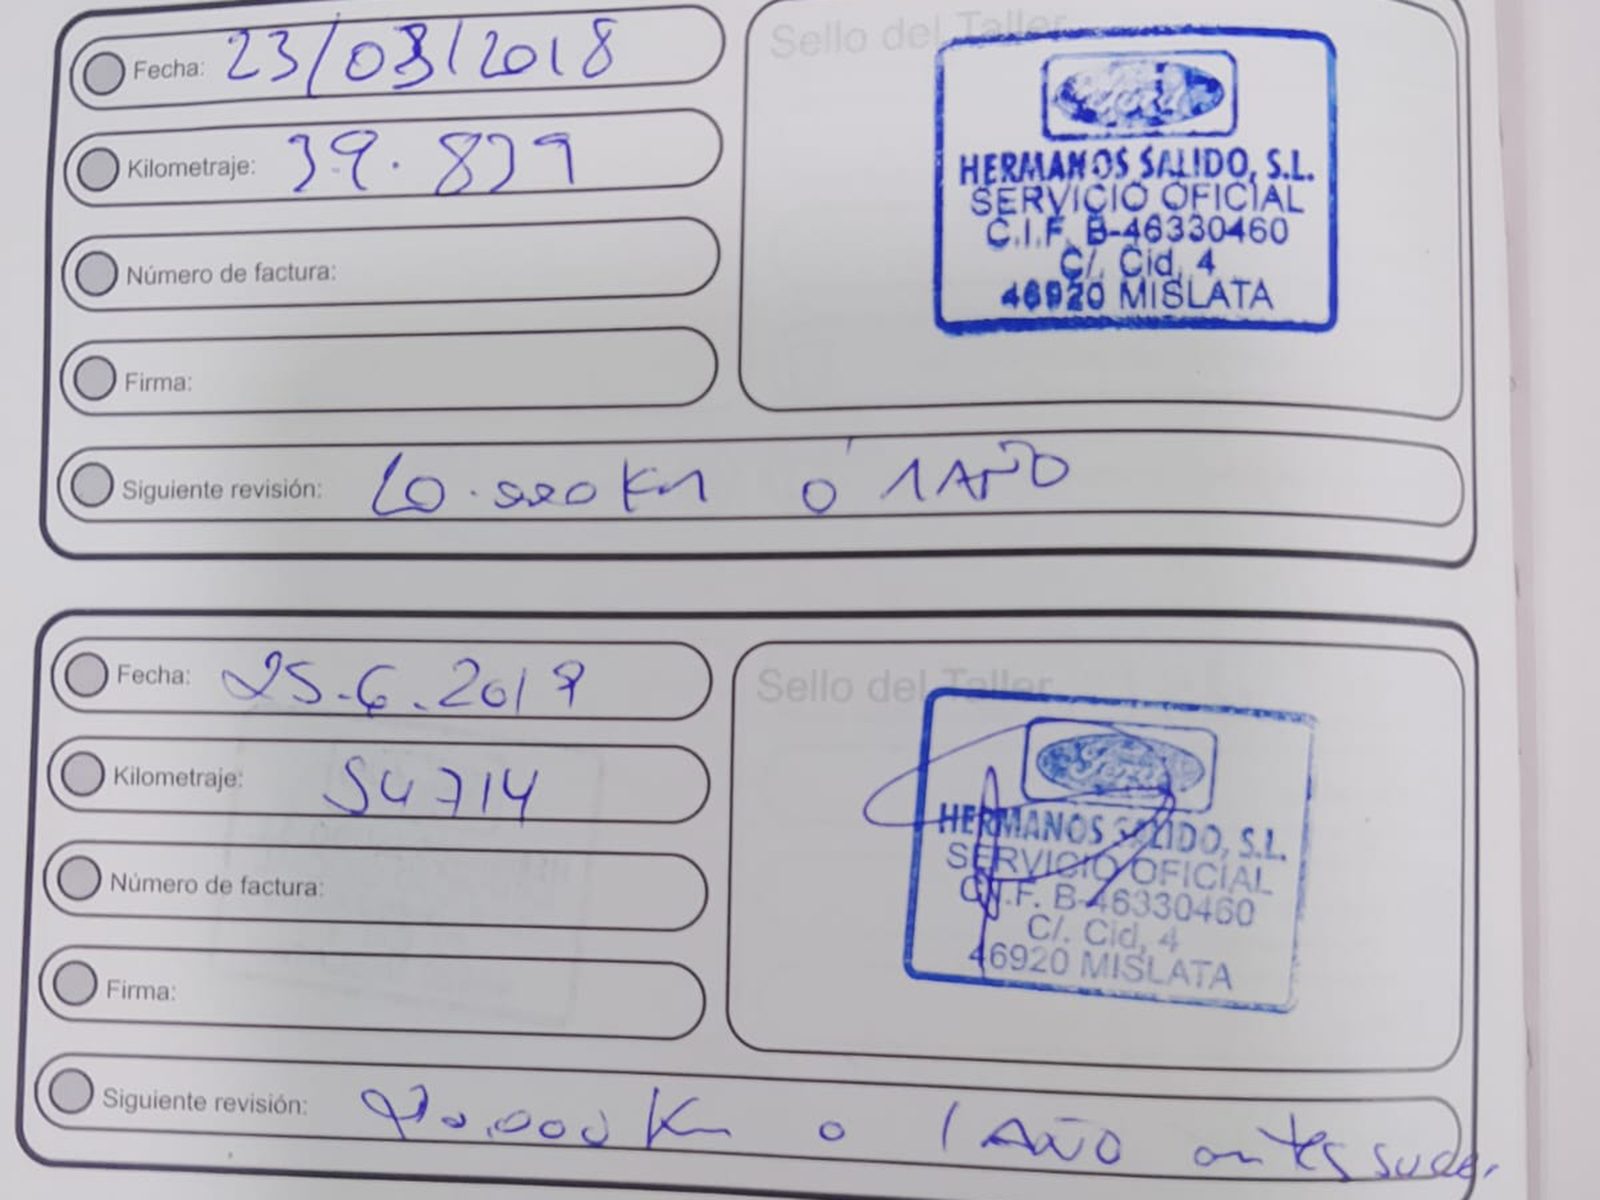 Fecha: 23/03/2018
Sello del Taller
Kilometraje: 39.839
Ford
HERMANOS SALIDO, S.L.
SERVICIO OFICIAL
C.I.F. B-46330460
C/. Cid, 4
46920 MISLATA
Número de factura:
Firma:
Siguiente revisión: 60.000 Km ó 1 AÑO
Fecha: 25.6.2019
Sello del Taller
Kilometraje: 54714
Ford
HERMANOS SALIDO, S.L.
SERVICIO OFICIAL
C.I.F. B-46330460
C/. Cid, 4
46920 MISLATA
Número de factura:
Firma:
Siguiente revisión: Km o 1 AÑO antes